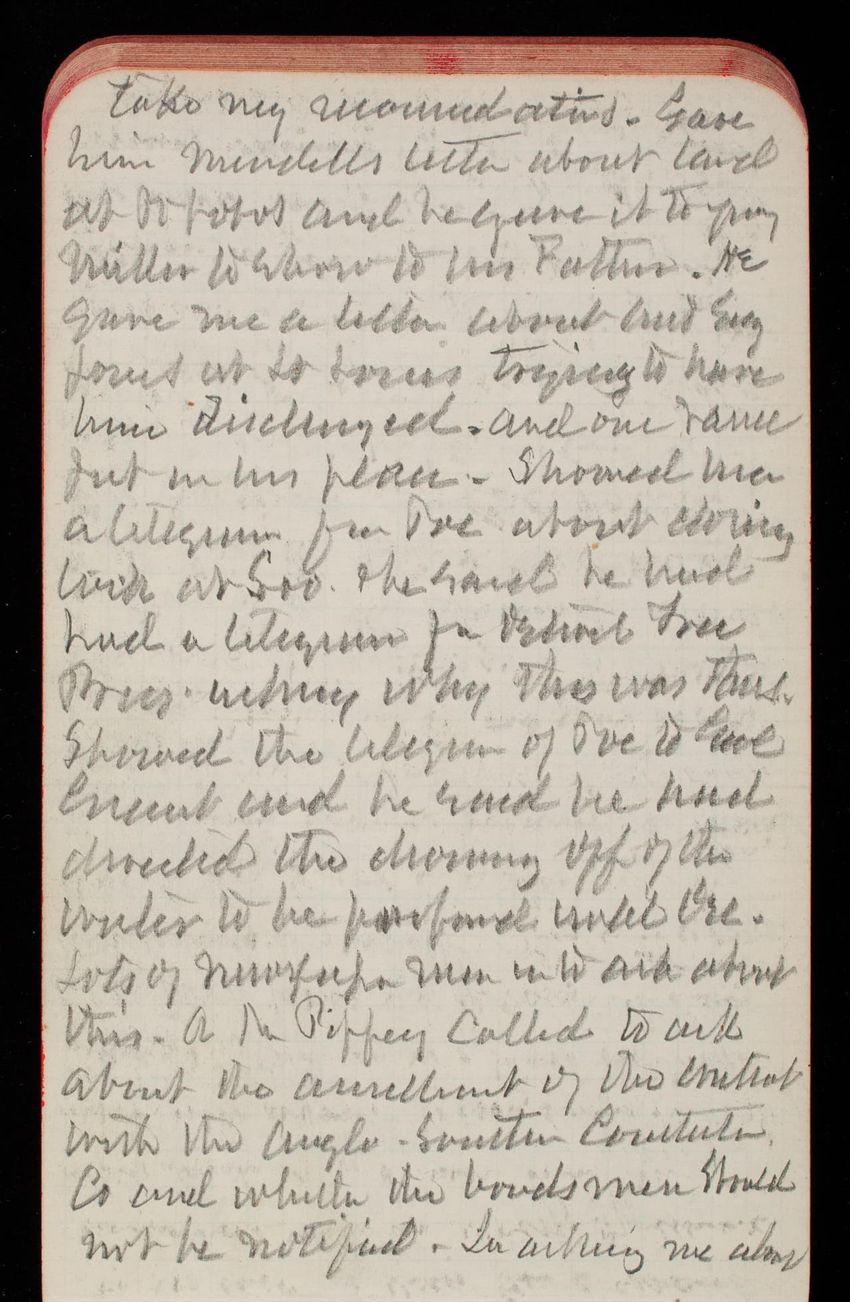 take my recommendations. Gave
him Mendells letter about land
at and he gave it to
Miller to show to his Father. He
gave me a letter about and
at St Louis trying to have
him discharged. and one
put in his place. Showed him
a telegram fm Poe about closing
lock at Soo. He said he had
had a telegram fm Detroit Free
Press asking why this was thus.
Showed the telegram of Poe to
and he said he had
directed the drawing off of the
water to be postponed until Dec.
Lots of newspaper men in to ask about
this. A Mr Pippey called to ask
about the annulment of the contract
with the Anglo-
Co and whether the bondsmen should
not be notified. In asking me about